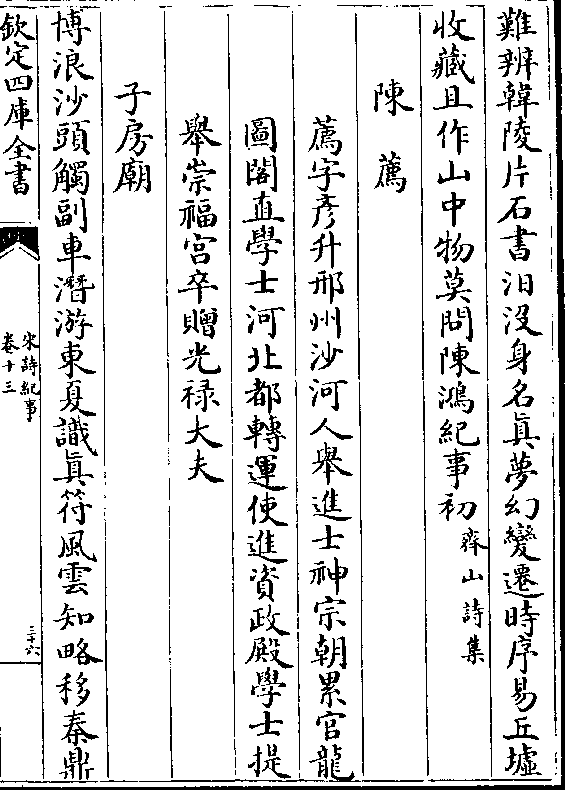 難辨韓陵片石書汨没身名真夢幻變遷時序易丘墟
收藏且作山中物莫問陳鴻紀事初 齊山詩集
陳薦
薦字彥升邢州沙河人舉進士神宗朝累官龍
圖閣直學士河北都轉運使進資政殿學士提
舉崇福宮卒贈光禄大夫
子房廟
博浪沙頭觸副車潛游東夏識真符風雲知略移秦鼎
欽定四庫全書
宋詩紀事
卷十三
三十六